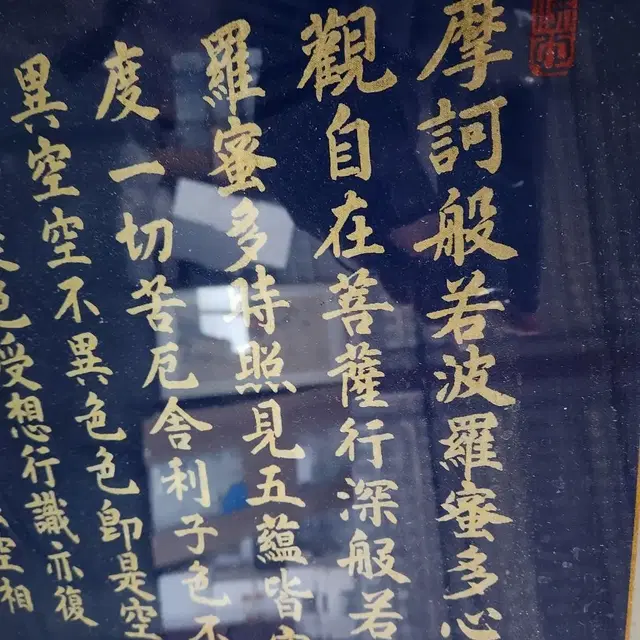 摩訶般若波羅蜜多心
觀自在菩薩行深般若
羅蜜多時照見五蘊皆空
度一切苦厄舍利子色不
異空空不異色色卽是空
色受想行識亦復
空相